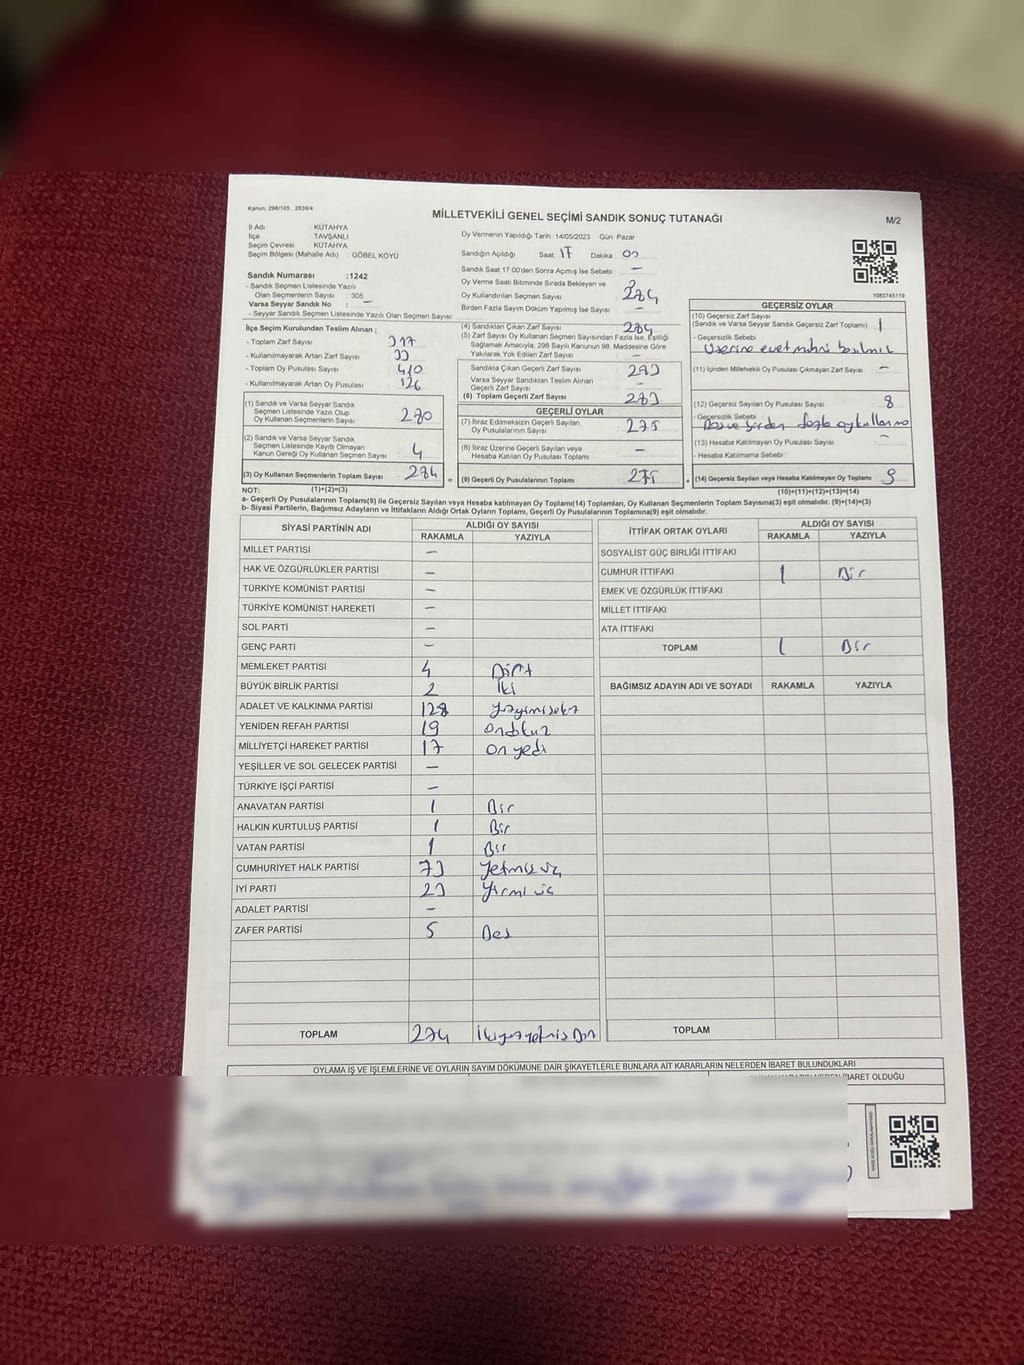 Kanun: 298/105 , 2839/4
MİLLETVEKİLİ GENEL SEÇİMİ SANDIK SONUÇ TUTANAĞI
M/2
İl Adı : KÜTAHYA
İlçe : TAVŞANLI
Seçim Çevresi : KÜTAHYA
Seçim Bölgesi (Mahalle Adı) : GÖBEL KÖYÜ
Sandık Numarası :1242
- Sandık Seçmen Listesinde Yazılı
Olan Seçmenlerin Sayısı : 305
Varsa Seyyar Sandık No : —
- Seyyar Sandık Seçmen Listesinde Yazılı Olan Seçmen Sayısı:
Oy Vermenin Yapıldığı Tarih :14/05/2023 Gün Pazar
Sandığın Açıldığı Saat: 17 Dakika 00
Sandık Saat 17:00'den Sonra Açımış İse Sebebi : —
Oy Verme Saati Bitiminde Sırada Bekleyen ve
Oy Kullandırılan Seçmen Sayısı
284
Birden Fazla Sayım Döküm Yapılmış İse Sayısı —
1083745119
İlçe Seçim Kurulundan Teslim Alınan ;
- Toplam Zarf Sayısı : 317
- Kullanılmayarak Artan Zarf Sayısı : 33
- Toplam Oy Pusulası Sayısı : 410
- Kullanılmayarak Artan Oy Pusulası : 126
(1) Sandık ve Varsa Seyyar Sandık
Seçmen Listesinde Yazılı Olup
Oy Kullanan Seçmen Sayısı
280
(2) Sandık ve Varsa Seyyar Sandık
Seçmen Listesinde Kayıtlı Olmayan
Kanun Gereği Oy Kullanan Seçmen Sayısı
4
(3) Oy Kullanan Seçmenlerin Toplam Sayısı 284
(1)+(2)=(3)
(4) Sandıktan Çıkan Zarf Sayısı 284
(5) Zarf Sayısı Oy Kullanan Seçmen Sayısından Fazla İse, Eşitliği
Sağlamak Amacıyla, 298 Sayılı Kanunun 98. Maddesine Göre
Yakılarak Yok Edilen Zarf Sayısı : —
Sandıkta Çıkan Geçerli Zarf Sayısı 283
Varsa Seyyar Sandıktan Teslim Alınan
Geçerli Zarf Sayısı —
(6) Toplam Geçerli Zarf Sayısı 283
GEÇERLİ OYLAR
(7) İtiraz Edilmeksizin Geçerli Sayılan
Oy Pusulalarının Sayısı 275
(8) İtiraz Üzerine Geçerli Sayılan veya
Hesaba Katılan Oy Pusulası Toplamı —
(9) Geçerli Oy Pusulalarının Toplamı 275
GEÇERSİZ OYLAR
(10) Geçersiz Zarf Sayısı
(Sandık ve Varsa Seyyar Sandık Geçersiz Zarf Toplamı) 1
- Geçersizlik Sebebi :
Üzerine evet mührü basılmış
(11) İçinden Milletvekili Oy Pusulası Çıkmayan Zarf Sayısı —
(12) Geçersiz Sayılan Oy Pusulası Sayısı 8
- Geçersizlik Sebebi
fazla oy kullanma
(13) Hesaba Katılmayan Oy Pusulası Sayısı —
- Hesaba Katılmama Sebebi :
(14) Geçersiz Sayılan veya Hesaba Katılmayan Oy Toplamı 9
(10)+(11)+(12)+(13)=(14)
NOT:
a- Geçerli Oy Pusulalarının Toplamı(9) ile Geçersiz Sayılan veya Hesaba katılmayan Oy Toplamı(14) Toplamları, Oy Kullanan Seçmenlerin Toplam Sayısına(3) eşit olmalıdır. (9)+(14)=(3)
b- Siyasi Partilerin, Bağımsız Adayların ve İttifakların Aldığı Ortak Oyların Toplamı, Geçerli Oy Pusulalarının Toplamına(9) eşit olmalıdır.
SİYASİ PARTİNİN ADI ALDIĞI OY SAYISI
RAKAMLA YAZIYLA
MİLLET PARTİSİ —
HAK VE ÖZGÜRLÜKLER PARTİSİ —
TÜRKİYE KOMÜNİST PARTİSİ —
TÜRKİYE KOMÜNİST HAREKETİ —
SOL PARTİ —
GENÇ PARTİ —
MEMLEKET PARTİSİ 4 Dört
BÜYÜK BİRLİK PARTİSİ 2 İki
ADALET VE KALKINMA PARTİSİ 128 Yüzyirmisekiz
YENİDEN REFAH PARTİSİ 19 ondokuz
MİLLİYETÇİ HAREKET PARTİSİ 17 on yedi
YEŞİLLER VE SOL GELECEK PARTİSİ —
TÜRKİYE İŞÇİ PARTİSİ —
ANAVATAN PARTİSİ 1 Bir
HALKIN KURTULUŞ PARTİSİ 1 Bir
VATAN PARTİSİ 1 Bir
CUMHURİYET HALK PARTİSİ 73 Yetmiş üç
İYİ PARTİ 23 Yirmi üç
ADALET PARTİSİ —
ZAFER PARTİSİ 5 Beş
TOPLAM 274 ikiyüzyetmişDört
İTTİFAK ORTAK OYLARI ALDIĞI OY SAYISI
RAKAMLA YAZIYLA
SOSYALİST GÜÇ BİRLİĞİ İTTİFAKI
CUMHUR İTTİFAKI 1 Bir
EMEK VE ÖZGÜRLÜK İTTİFAKI
MİLLET İTTİFAKI
ATA İTTİFAKI
TOPLAM 1 Bir
BAĞIMSIZ ADAYIN ADI VE SOYADI RAKAMLA YAZIYLA
TOPLAM
OYLAMA İŞ VE İŞLEMLERİNE VE OYLARIN SAYIM DÖKÜMÜNE DAİR ŞİKAYETLERLE BUNLARA AİT KARARLARIN NELERDEN İBARET BULUNDUKLARI
İBARET OLDUĞU